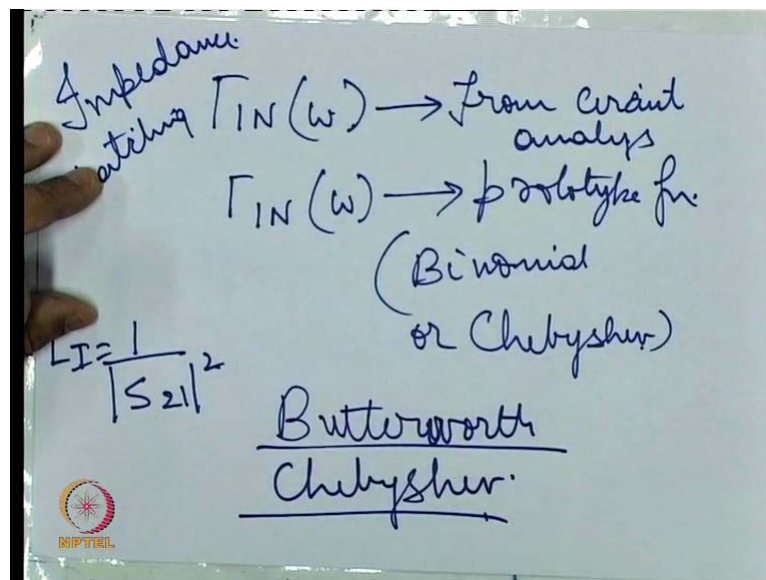 Impedance
matching
Γ IN (ω) → from circuit
analys
Γ IN (ω) → prototype fn.
(Binomial
or Chebyshev)
LI = 1 / |S21|²
Butterworth
Chebyshev.
NPTEL